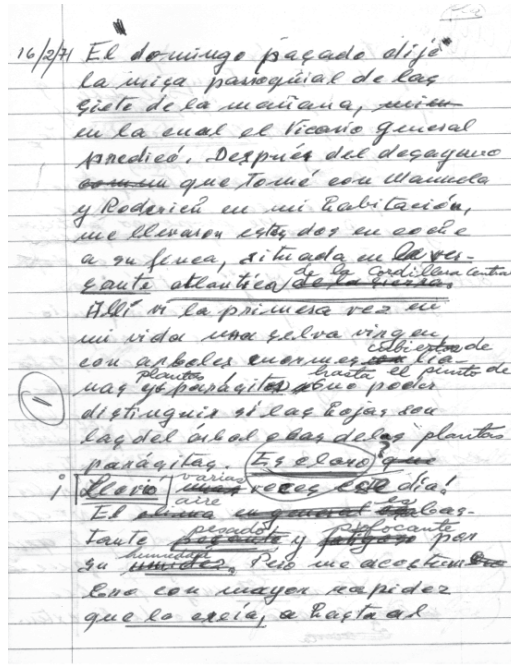 16/2/71 El domingo pasado dije
la misa parroquial de las
siete de la mañana,
en la cual el Vicario General
predicó. Después del desayuno
que tomé con Manuela
y Roderich en mi habitación,
me llevaron estos dos en coche
a su finca, situada en la ver-
sante atlantica de la Cordillera Central
de la sierra.
Allí vi la primera vez en
mi vida una selva virgen
con arboles enormes cubiertos de lia-
nas y plantas parásitas hasta el punto de no poder
distinguir si las hojas son
las del árbol o las de las plantas
parásitas. Es claro: que
¡Llovió varias veces ese día!
El aire es bas-
tante pesado y sofocante por
su humedad. Pero me acostum
bro con mayor rapidez
que lo creía, a hasta al
1